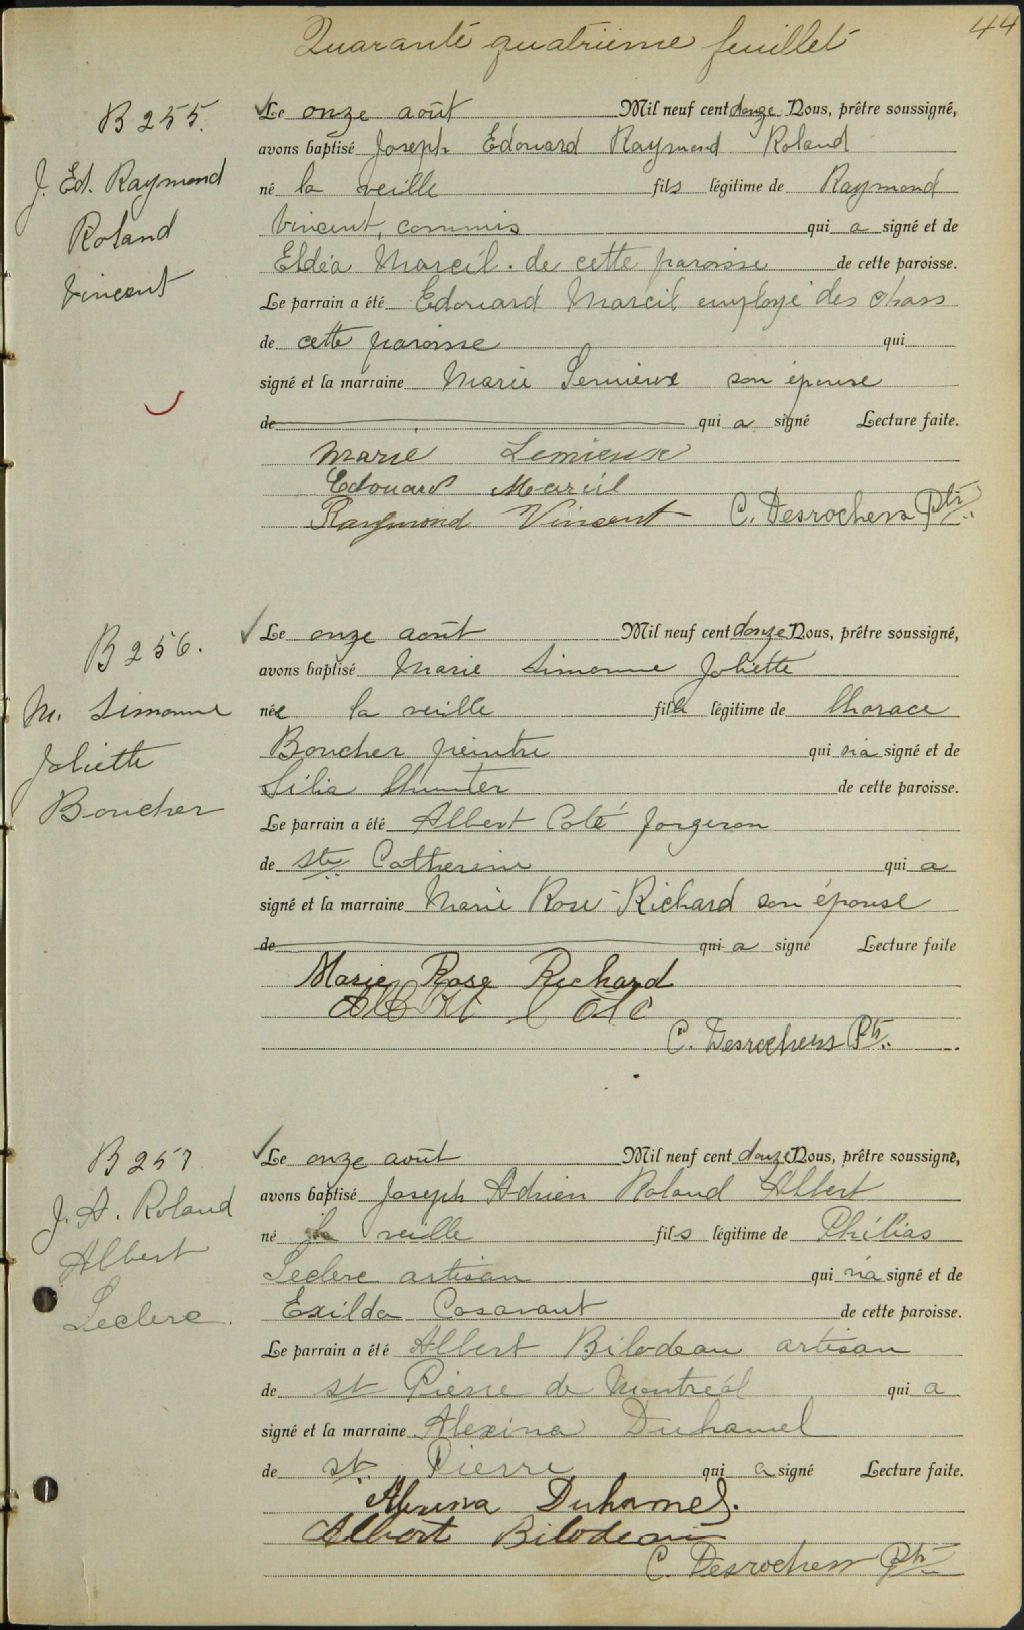 44
Quarante quatrième feuillet
B 255.
J. Ed. Raymond
Roland
Vincent
Le onze août Mil neuf cent douze Nous, prêtre soussigné,
avons baptisé Joseph Edouard Raymond Roland
né la veille fils légitime de Raymond
Vincent, commis qui a signé et de
Eldéa Marcil. de cette paroisse de cette paroisse.
Le parrain a été Edouard Marcil employé des chars
de cette paroisse qui
signé et la marraine Marie Lemieux son épouse
de qui a signé Lecture faite.
Marie Lemieux
Edouard Marcil
Raymond Vincent C. Desrochers Ptr.
B 256.
M. Simonne
Joliette
Boucher
Le onze août Mil neuf cent douze Nous, prêtre soussigné,
avons baptisé Marie Simonne Joliette
née la veille fille légitime de Lhorace
Boucher peintre qui n'a signé et de
Silia Lhunter de cette paroisse.
Le parrain a été Albert Coté forgeron
de Ste Catherine qui a
signé et la marraine Marie Rose Richard son épouse
de qui a signé Lecture faite
Marie Rose Richard
Albert Coté
C. Desrochers Ptr.
B 257
J. A. Roland
Albert
Leclerc.
Le onze août Mil neuf cent douze Nous, prêtre soussigné,
avons baptisé Joseph Adrien Roland Albert
né la veille fils légitime de Philias
Leclerc artisan qui n'a signé et de
Exilda Casavant de cette paroisse.
Le parrain a été Albert Bilodeau artisan
de st Pierre de Montréal qui a
signé et la marraine Alexina Duhamel
de st Pierre qui a signé Lecture faite.
Alexina Duhamel.
Albert Bilodeau
C. Desrochers Ptr.